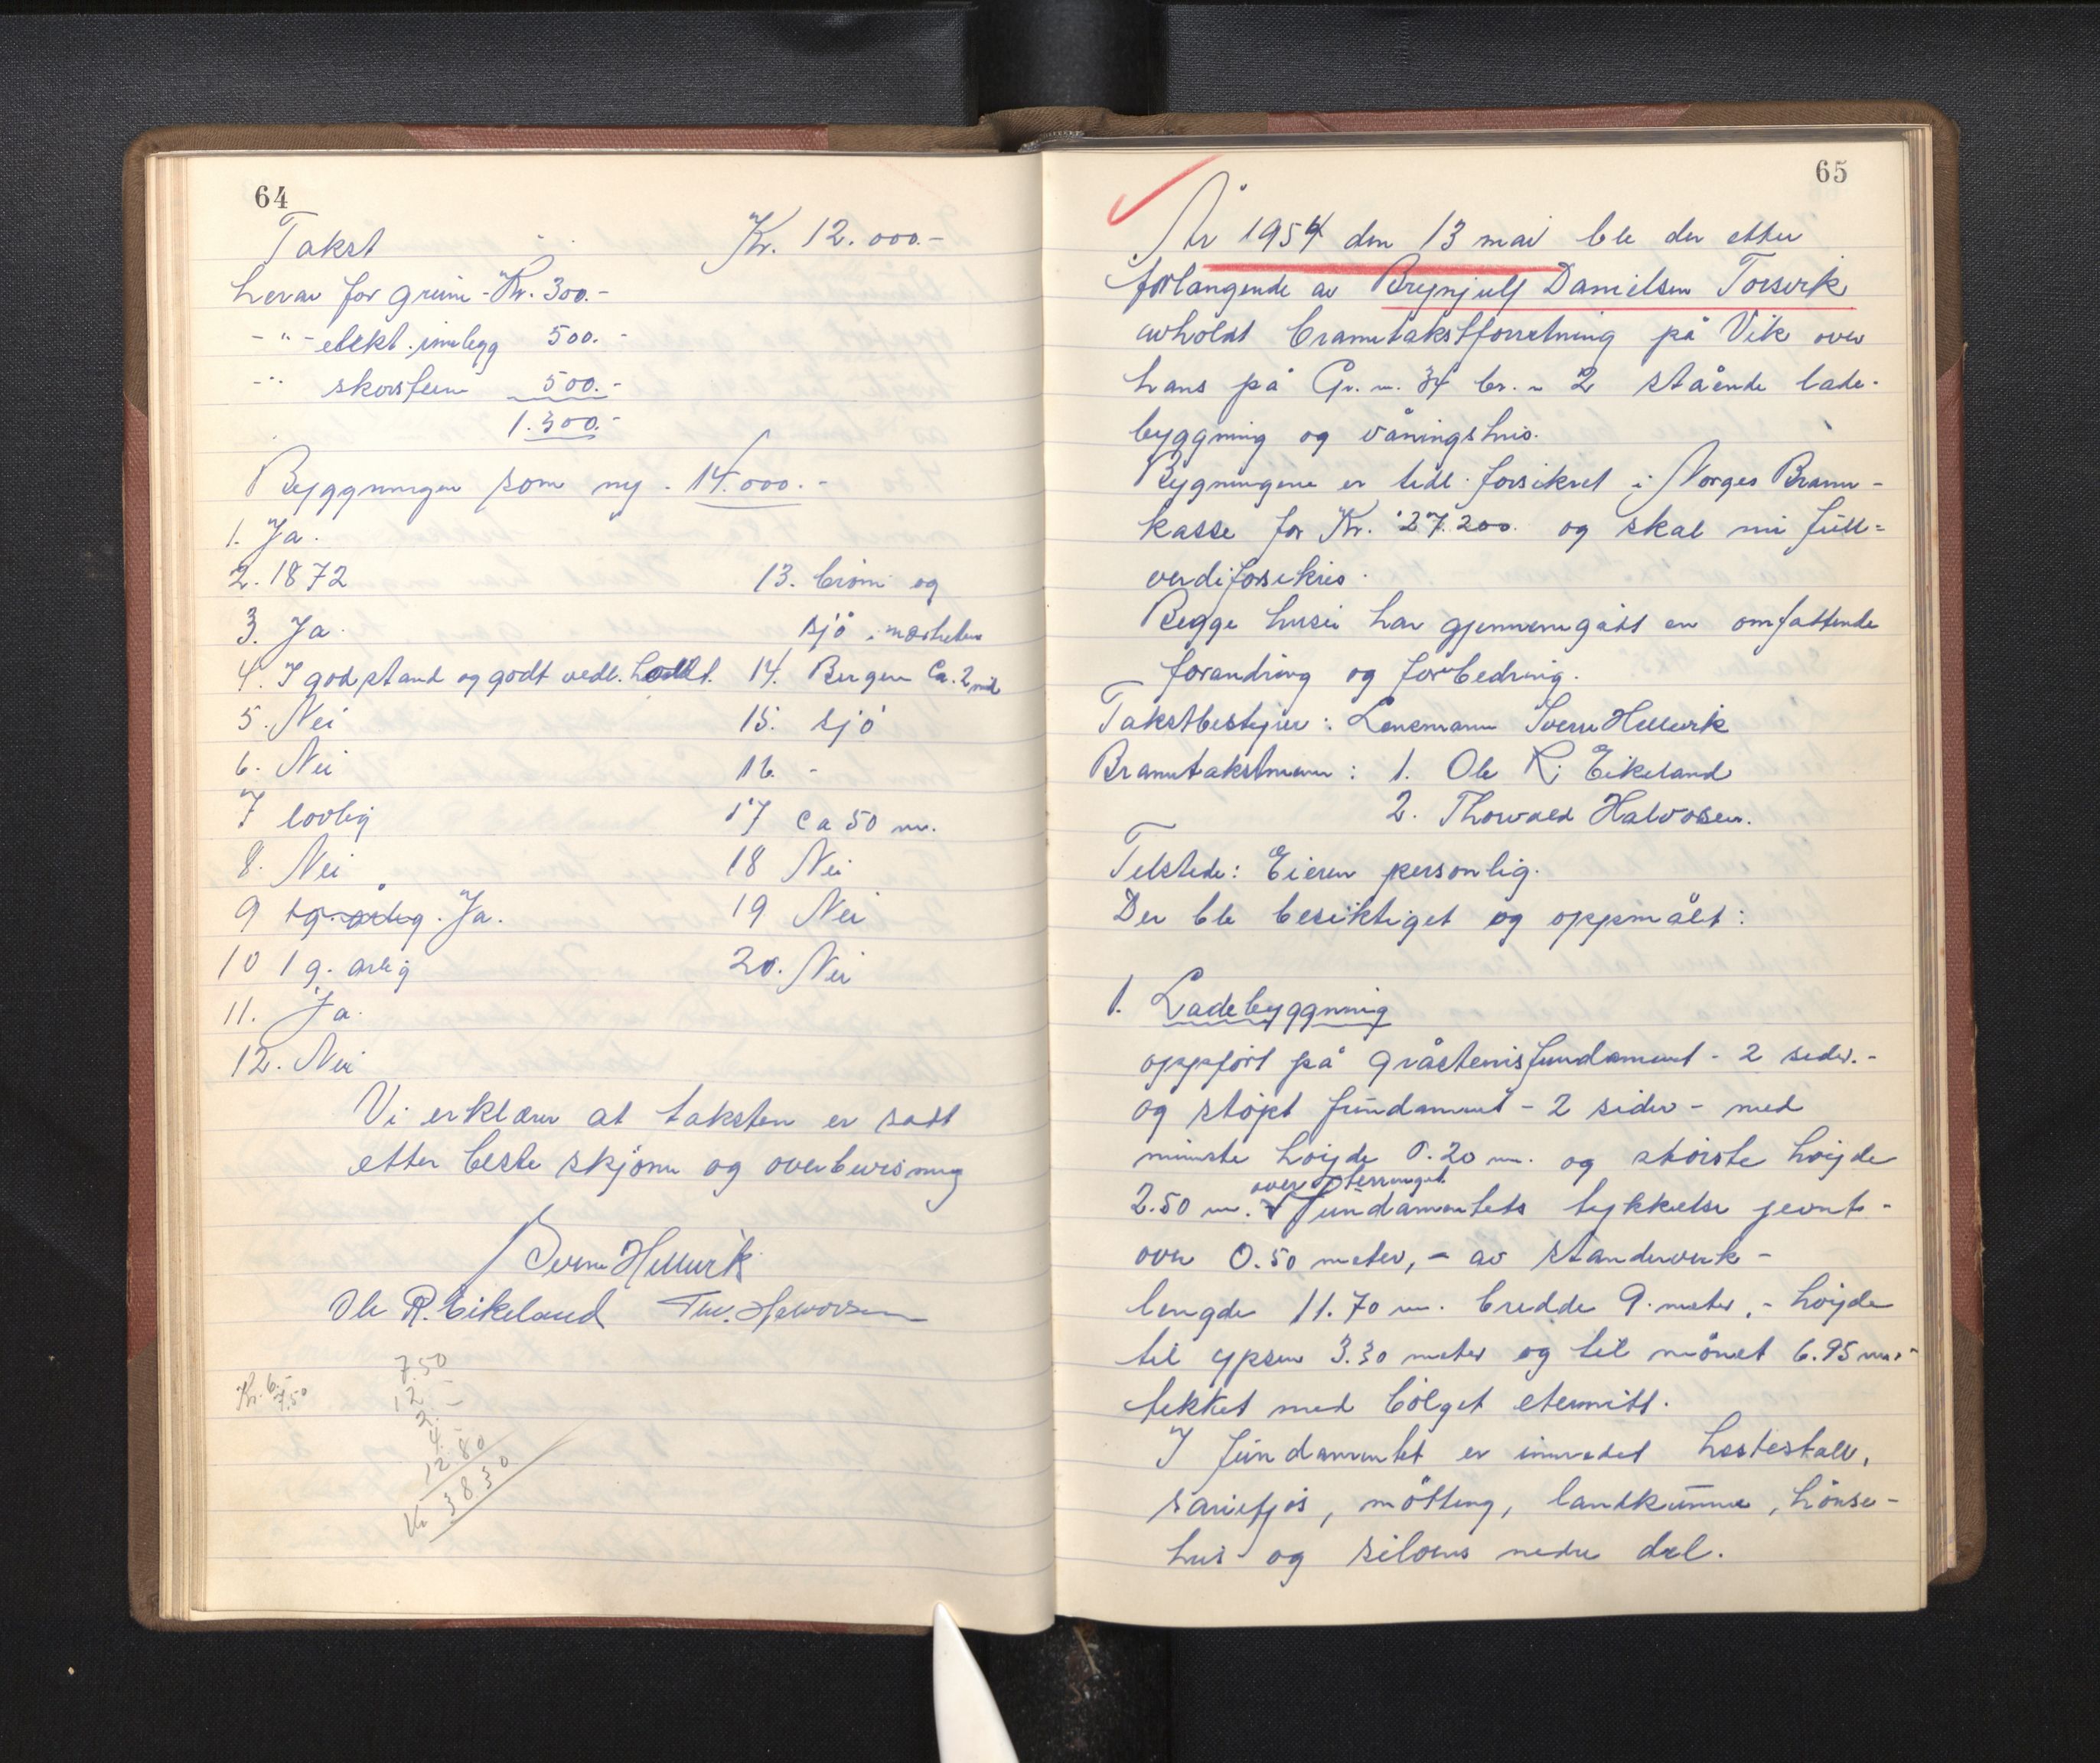 64
Takst Kr. 12.000.-
herav for grunn - Kr. 300.-
- " - elekt. innlegg 500.-
- " skorstein 500.-
1.300.-
Byggningen som ny. 14.000.-
1. Ja.
2. 1872
3. Ja.
4. I god stand og godt vedl. holdt.
5. Nei
6. Nei
7 lovlig
8. Nei
9 1 g. årlig. Ja.
10 1 g. årlig
11. Ja.
12. Nei
13. brønn og
sjø i nærheten
14. Bergen ca. 2 mil
15. sjø
16. -
17 ca 50 m.
18 Nei
19 Nei
20. Nei
Vi erklærer at taksten er satt
etter beste skjønn og overbevisning
Sverre Hellevik
Ole R. Eikeland Thv. Halvorsen
Kr. 6.-
7.50
7.50
12.-
2.-
4.-
12.80
Kr 38.30
65
År 1954 den 13 mai ble der etter
forlangende av Brynjulf Danielsen Torsvik
avholdt branntakstforretning på Vik over
hans på Gr. n. 34 br. n 2 stående lade-
byggning og våningshus.
Bygningene er tidl. forsikret i Norges Brann-
kasse for Kr. 27.200. og skal nu full=
verdiforsikres.
Begge husei har gjennemgått en omfattende
forandring og forbedring.
Takstbestyrer: Lensmann Sverre Hellevik
Branntakstmenn: 1. Ole R. Eikeland
2. Thorvald Halvorsen.
Tilstede: Eieren personlig.
Der ble besiktiget og oppmålt:
1. Ladebyggning
oppført på gråsteinsfundament - 2 sider.-
og støpt fundament - 2 sider - med
minste høyde 0.20 m. og største høyde
over terrenget.
2.50 m. Fundamentets tykkelse jevnt-
over 0.50 meter, - av standerverk -
lengde 11.70 m. bredde 9. meter, - høyde
til gpsen 3.30 meter og til mønet 6.95 m.-
tekket med bølget eternitt.
I fundamentet er innredet hestestall,
sauefjøs, møtting, landkumme, hønse-
hus og siloens nedre del.